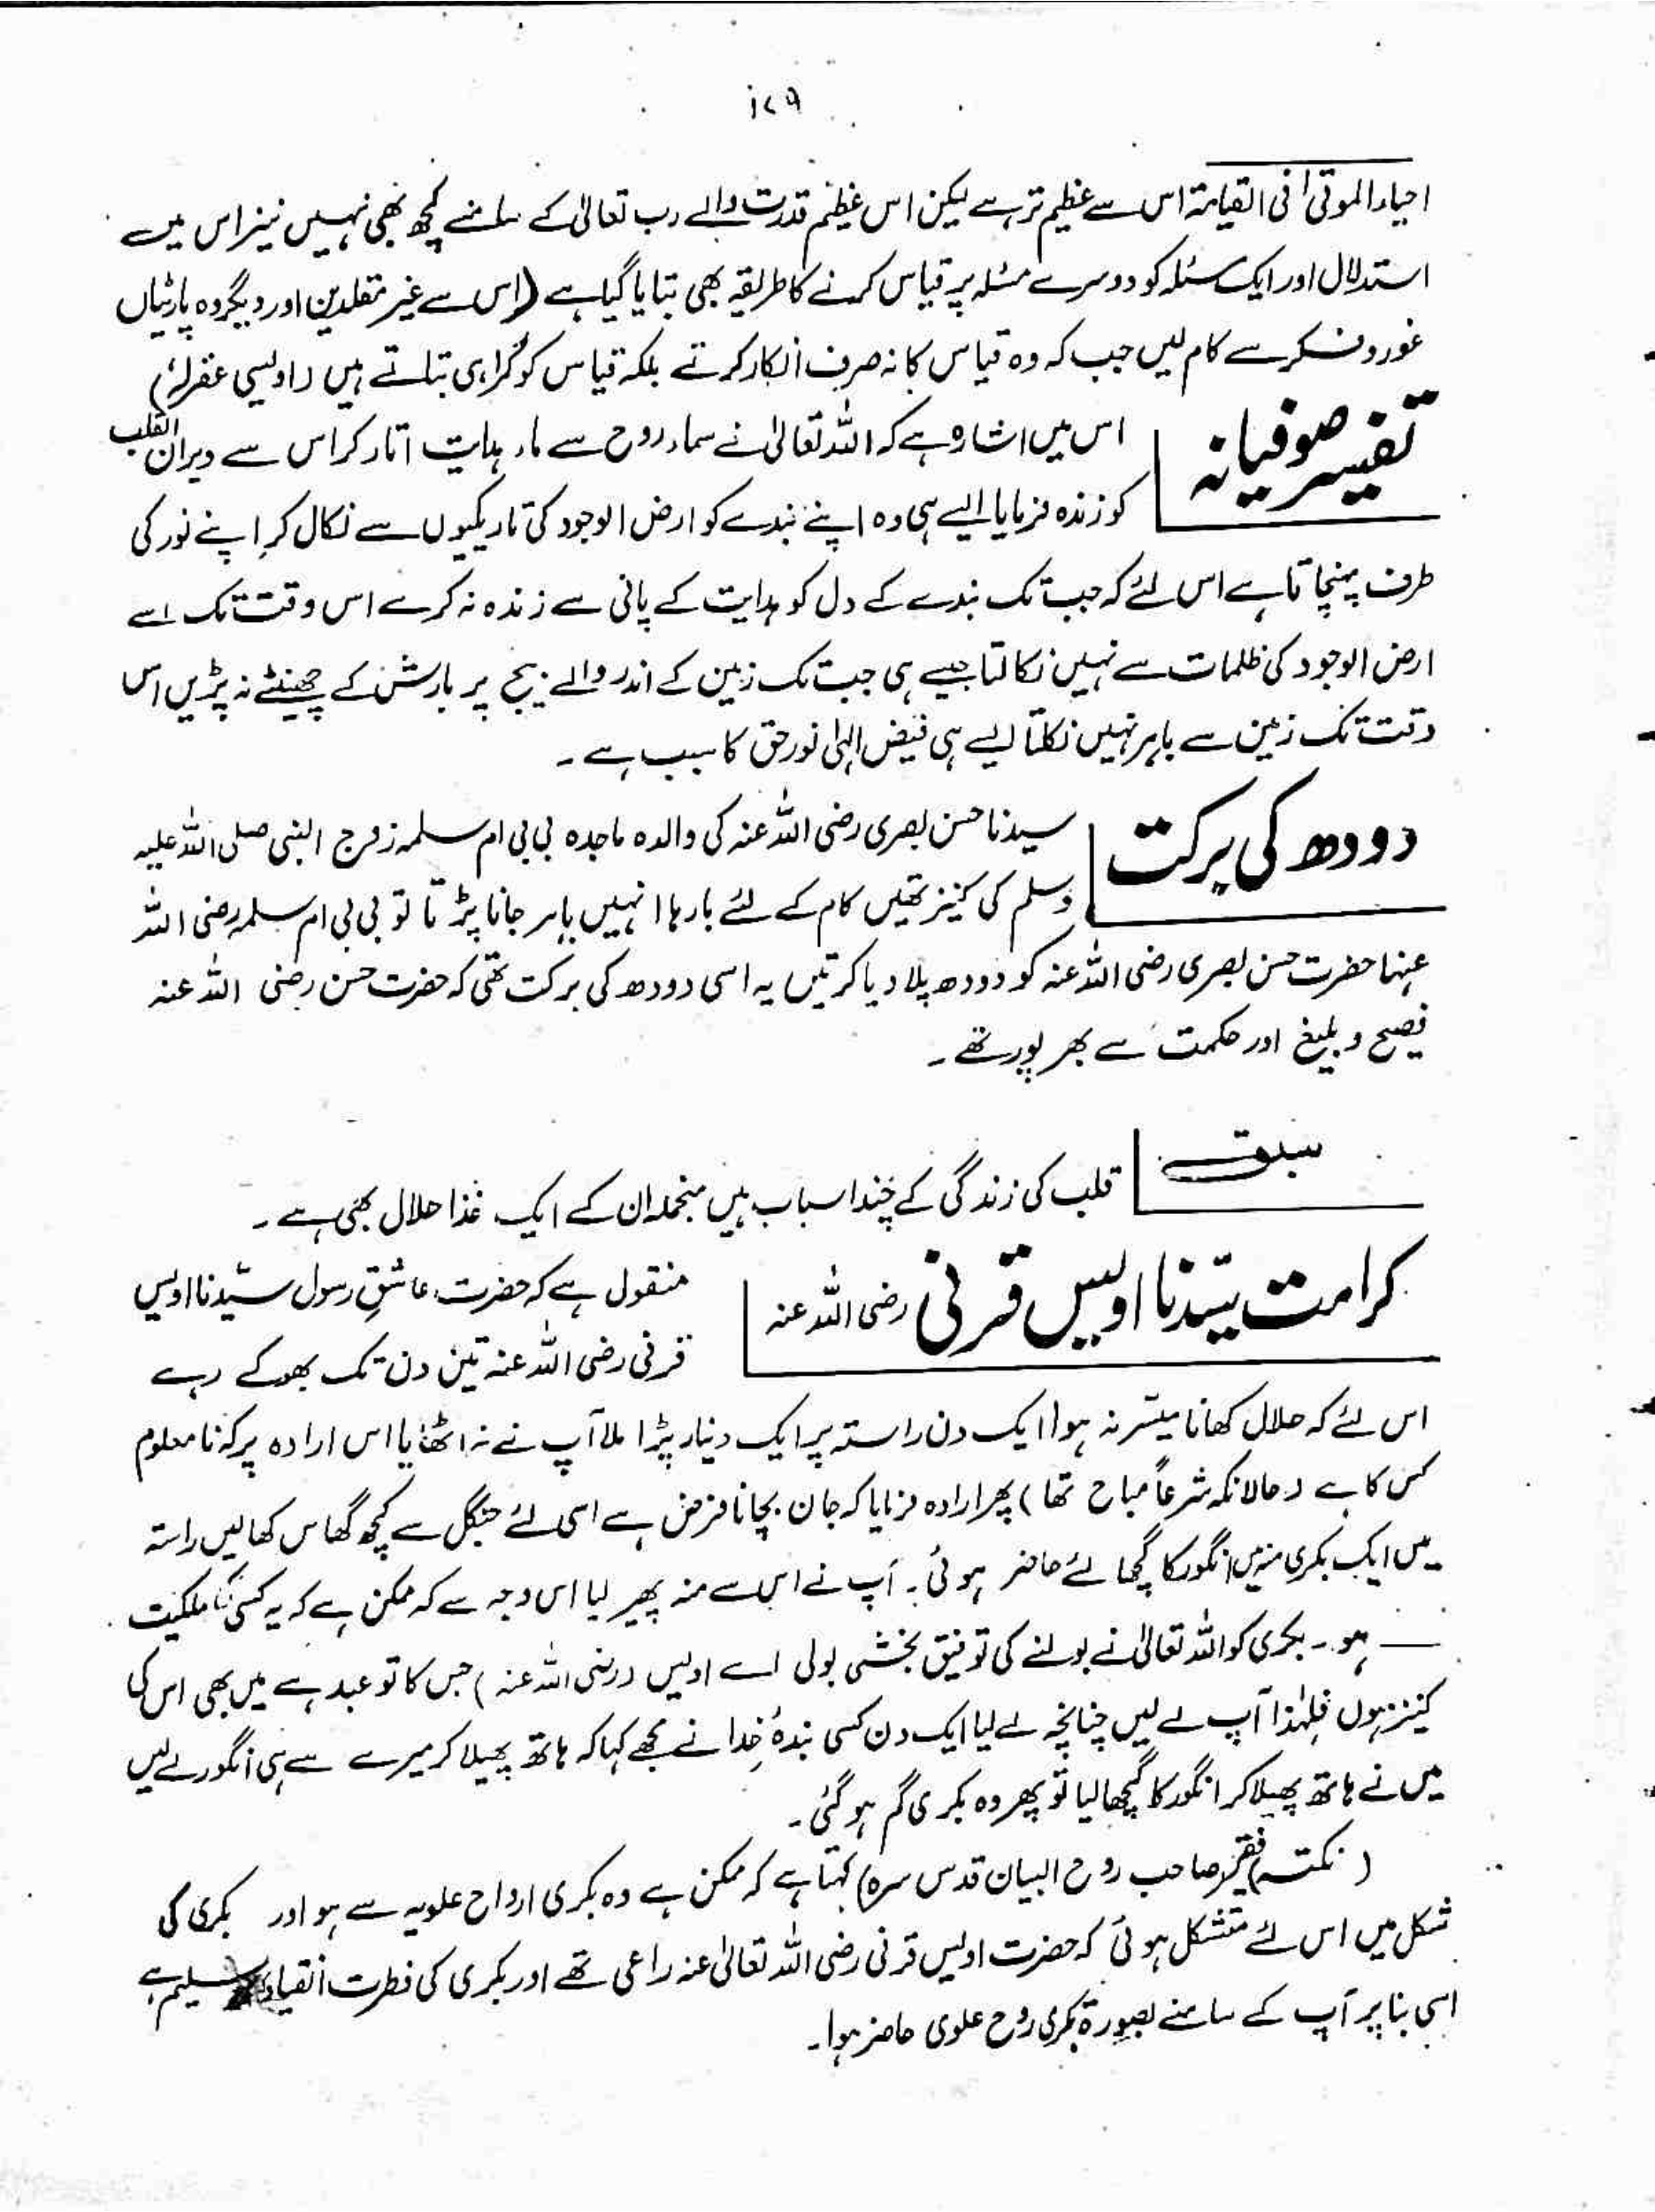 ۱۷۹
احیاء الموتیٰ فی القیامۃ اس سے عظیم تر ہے لیکن اس عظیم قدرت والے رب تعالیٰ کے سامنے کچھ بھی نہیں نیز اس میں
استدلال اور ایک مسئلہ کو دوسرے مسئلہ پر قیاس کرنے کا طریقہ بھی بتایا گیا ہے (اس سے غیر مقلدین اور دیگر وہ پارٹیاں
غور و فکر سے کام لیں جب کہ وہ قیاس کا نہ صرف انکار کرتے بلکہ قیاس کو گمراہی بتاتے ہیں (اویسی غفرلہٗ)
تفسیر صوفیانہ
اس میں اشارہ ہے کہ اللہ تعالیٰ نے سماء روح سے ماء ہدایت اتار کر اس سے ویران القلب
کو زندہ فرمایا ایسے ہی وہ اپنے بندے کو ارض الوجود کی تاریکیوں سے نکال کر اپنے نور کی
طرف پہنچاتا ہے اس لئے کہ جب تک بندے کے دل کو ہدایت کے پانی سے زندہ نہ کرے اس وقت تک اسے
ارض الوجود کی ظلمات سے نہیں نکالتا جیسے ہی جب تک زمین کے اندر والے بیج پر بارش کے چھینٹے نہ پڑیں اس
وقت تک زمین سے باہر نہیں نکلتا ایسے ہی فیض الہٰی نور حق کا سبب ہے ۔
دودھ کی برکت
سیدنا حسن بصری رضی اللہ عنہ کی والدہ ماجدہ بی بی ام سلمہ زوج النبی صلی اللہ علیہ
وسلم کی کنیز تھیں کام کے لئے بارہا انہیں باہر جانا پڑتا تو بی بی ام سلمہ رضی اللہ
عنہا حضرت حسن بصری رضی اللہ عنہ کو دودھ پلا دیا کرتیں یہ اسی دودھ کی برکت تھی کہ حضرت حسن رضی اللہ عنہ
فصیح و بلیغ اور حکمت سے بھر پور تھے ۔
سبق
قلب کی زندگی کے چند اسباب ہیں منجملہ ان کے ایک غذا حلال بھی ہے ۔
کرامت سیّدنا اویس قرنی رضی اللہ عنہ
منقول ہے کہ حضرت عاشقِ رسول سیّدنا اویس
قرنی رضی اللہ عنہ تین دن تک بھوکے رہے
اس لئے کہ حلال کھانا میسّر نہ ہوا ایک دن راستہ پر ایک دینار پڑا ملا آپ نے نہ اٹھایا اس ارادہ پر کہ نا معلوم
کس کا ہے (حالانکہ شرعاً مباح تھا) پھر ارادہ فرمایا کہ جان بچانا فرض ہے اسی لئے جنگل سے کچھ گھاس کھالیں راستہ
میں ایک بکری منہ میں انگور کا گچھا لئے حاضر ہوئی ۔ آپ نے اس سے منہ پھیر لیا اس وجہ سے کہ ممکن ہے کہ یہ کسی کا ملکیت
ہو ۔ بکری کو اللہ تعالیٰ نے بولنے کی توفیق بخشی بولی اے اویس (رضی اللہ عنہ) جس کا تو عبد ہے میں بھی اس کی
کنیز ہوں فلہٰذا آپ لے لیں چنانچہ لے لیا ایک دن کسی بندۂ خدا نے مجھے کہا کہ ہاتھ پھیلا کر میرے سے ہی انگور لے لیں
میں نے ہاتھ پھیلا کر انگور کا گچھا لیا تو پھر وہ بکری گم ہو گئی ۔
(نکتہ) فقیر (صاحب روح البیان قدس سرہ) کہتا ہے کہ ممکن ہے وہ بکری ارواح علویہ سے ہو اور بکری کی
شکل میں اس لئے متشکل ہوئی کہ حضرت اویس قرنی رضی اللہ تعالیٰ عنہ راعی تھے اور بکری کی فطرت انقیاد تسلیم ہے
اسی بنا پر آپ کے سامنے بصورۃ بکری روح علوی حاضر ہوا ۔